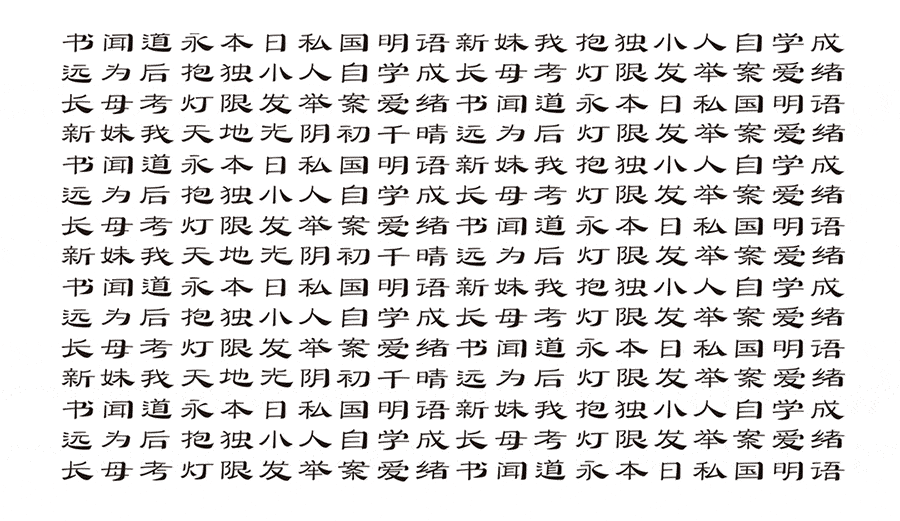 书闻道永本日私国明语新妹我抱独小人自学成
远为后抱独小人自学成长母考灯限发举案爱绪
长母考灯限发举案爱绪书闻道永本日私国明语
新妹我天地光阴初千晴远为后灯限发举案爱绪
书闻道永本日私国明语新妹我抱独小人自学成
远为后抱独小人自学成长母考灯限发举案爱绪
长母考灯限发举案爱绪书闻道永本日私国明语
新妹我天地光阴初千晴远为后灯限发举案爱绪
书闻道永本日私国明语新妹我抱独小人自学成
远为后抱独小人自学成长母考灯限发举案爱绪
长母考灯限发举案爱绪书闻道永本日私国明语
新妹我天地光阴初千晴远为后灯限发举案爱绪
书闻道永本日私国明语新妹我抱独小人自学成
远为后抱独小人自学成长母考灯限发举案爱绪
长母考灯限发举案爱绪书闻道永本日私国明语